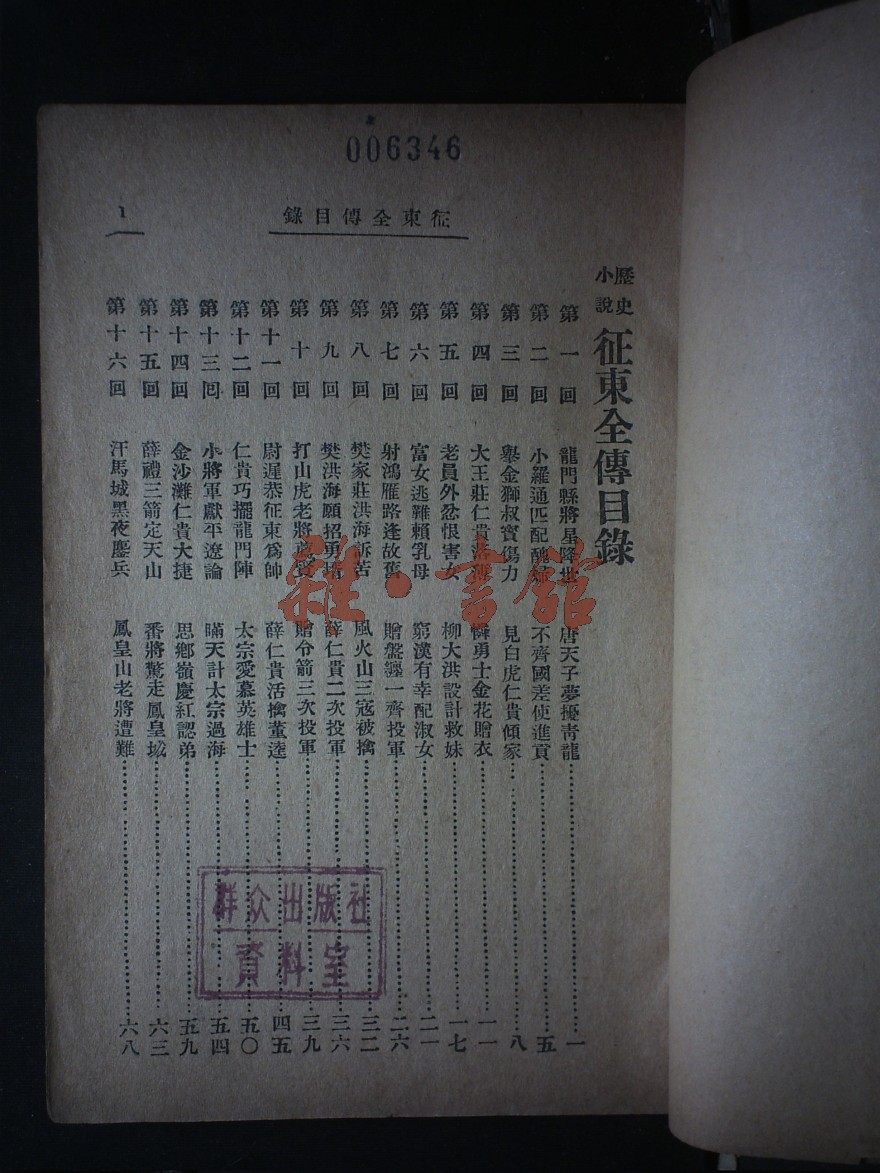 006346
征東全傳目錄
1
歷史小說 征東全傳目錄
第一回 龍門縣將星降世 唐天子夢擾青龍 一
第二回 小羅通匹配醜婦 不齊國差使進貢 五
第三回 舉金獅叔寶傷力 見白虎仁貴傾家 八
第四回 大王莊仁貴落魄 憐勇士金花贈衣 一一
第五回 老員外忿恨害女 柳大洪設計救妹 一七
第六回 富女逃難賴乳母 窮漢有幸配淑女 二一
第七回 射鴻雁路逢故舊 贈盤纏一齊投軍 二六
第八回 樊家莊洪海訴苦 風火山三寇被擒 三二
第九回 樊洪海願招勇壻 薛仁貴二次投軍 三六
第十回 打山虎老將 贈令箭三次投軍 三九
第十一回 尉遲恭征東爲帥 薛仁貴活擒董逵 四五
第十二回 仁貴巧擺龍門陣 太宗愛慕英雄士 五〇
第十三回 小將軍獻平遼論 瞞天計太宗過海 五四
第十四回 金沙灘仁貴大捷 思鄉嶺慶紅認弟 五九
第十五回 薛禮三箭定天山 番將驚走鳳皇城 六三
第十六回 汗馬城黑夜鏖兵 鳳皇山老將遭難 六八
雜·書館
群众出版社
資料室